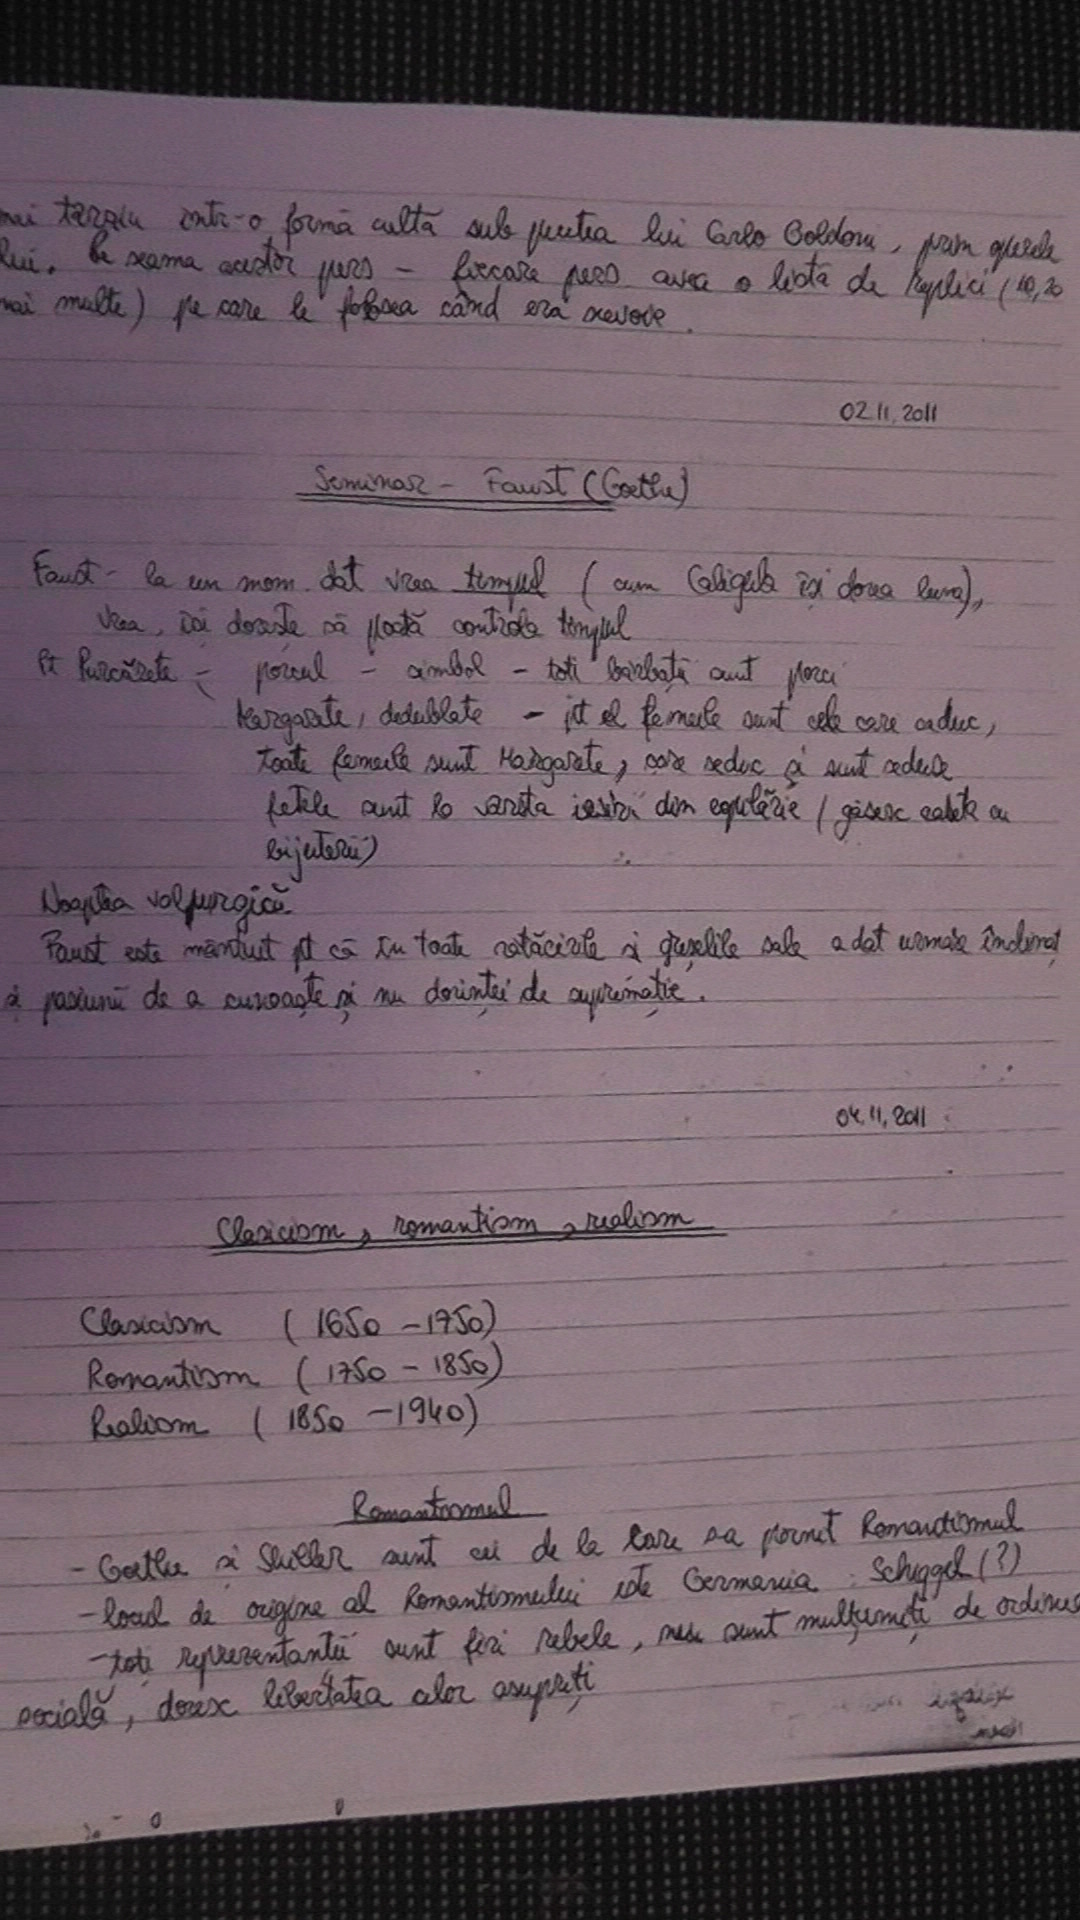 mai tarziu intr-o formă cultă sub pustea lui Carlo Goldoni, prin operele
lui. Pe seama acestor pers - fiecare pers avea o listă de replici (10, 20
mai multe) pe care le folosea când era nevoie.
02.11.2011
Seminar - Faust (Goethe)
Faust - la un mom. dat vrea timpul (cum Caligula își dorea luna),
vrea, își dorește să poată controla timpul
Pt Purcărete - porcul - simbol - toti barbații sunt porci
Margarete, dedublate - pt el femeile sunt cele care aduc,
toate femeile sunt Margarete, care seduc și sunt seduse
fetele sunt la varsta iesirii din copilărie (găsesc caseta cu
bijuterii)
Noaptea valpurgică.
Faust este mântuit pt că în toate rătăcirile și greșelile sale a dat urmare înclinați
ei pasiunii de a cunoaște și nu dorinței de suprimație.
04.11.2011
Clasicism, romantism, realism
Clasicism (1650 - 1750)
Romantism (1750 - 1850)
Realism (1850 - 1940)
Romantismul
- Goethe si Shiller sunt cei de la care s-a pornit Romantismul
- locul de origine al Romantismului este Germania : Schiggel (?)
- toți reprezentantii sunt firi rebele, nu sunt mulțumiți de ordinea
socială, doresc libertatea celor asupriți